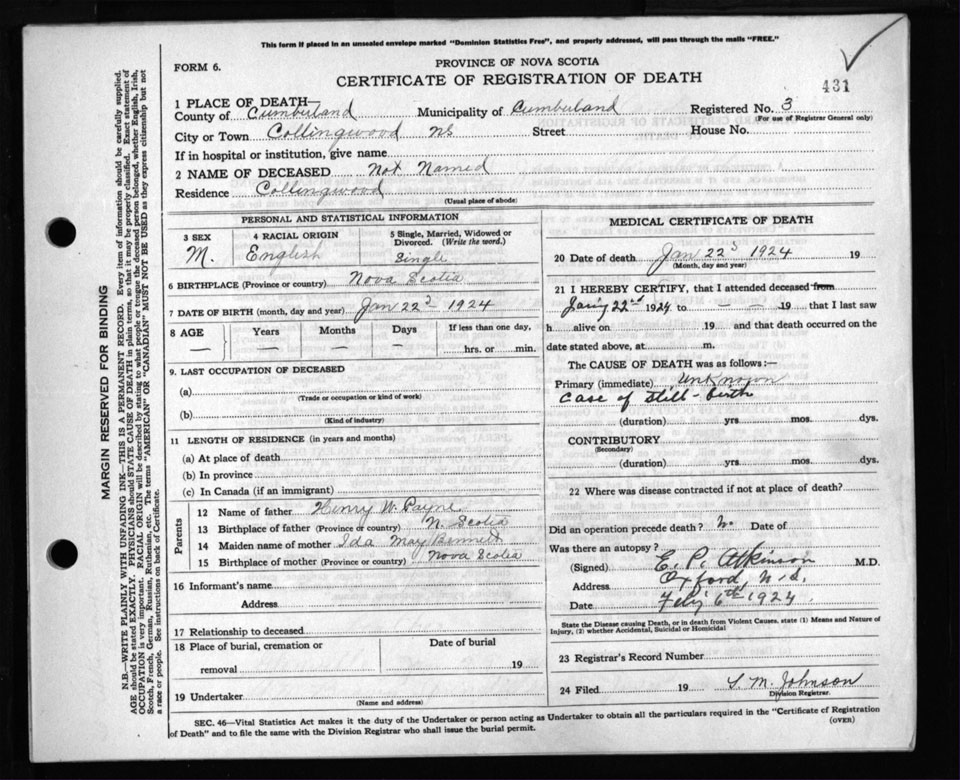 This form if placed in an unsealed envelope marked "Dominion Statistics Free", and properly addressed, will pass through the mails "FREE."
FORM 6.
PROVINCE OF NOVA SCOTIA
CERTIFICATE OF REGISTRATION OF DEATH
431
1 PLACE OF DEATH—
County of Cumberland Municipality of Cumberland Registered No. 3
(For use of Registrar General only)
City or Town Collingwood NS Street House No.
If in hospital or institution, give name
2 NAME OF DECEASED Not Named
Residence Collingwood
(Usual place of abode)
PERSONAL AND STATISTICAL INFORMATION
3 SEX 4 RACIAL ORIGIN 5 Single, Married, Widowed or Divorced. (Write the word.)
M. English Single
6 BIRTHPLACE (Province or country) Nova Scotia
7 DATE OF BIRTH (month, day and year) Jan 22d 1924
8 AGE Years Months Days If less than one day,
— — — — hrs. or min.
9. LAST OCCUPATION OF DECEASED
(a)
(Trade or occupation or kind of work)
(b)
(Kind of industry)
11 LENGTH OF RESIDENCE (in years and months)
(a) At place of death
(b) In province
(c) In Canada (if an immigrant)
Parents
12 Name of father Henry W. Payne
13 Birthplace of father (Province or country) N. Scotia
14 Maiden name of mother Ida May Bennett
15 Birthplace of mother (Province or country) Nova Scotia
16 Informant's name
Address
17 Relationship to deceased
18 Place of burial, cremation or Date of burial
removal 19
19 Undertaker
(Name and address)
MEDICAL CERTIFICATE OF DEATH
20 Date of death Jan 22d 1924 19
(Month, day and year)
21 I HEREBY CERTIFY, that I attended deceased from
22nd 1924 to — — 19 that I last saw
h alive on 19 and that death occurred on the
date stated above, at m.
The CAUSE OF DEATH was as follows:—
Primary (immediate) Unknown
Case of Still-birth
(duration) yrs mos. dys.
CONTRIBUTORY
(Secondary)
(duration) yrs mos. dys.
22 Where was disease contracted if not at place of death?
Did an operation precede death? Date of
Was there an autopsy?
(Signed) E. P. Atkinson M.D.
Address Oxford, N.S.
Date 6th 1924
State the Disease causing Death, or in death from Violent Causes, state (1) Means and Nature of
Injury, (2) whether Accidental, Suicidal or Homicidal
23 Registrar's Record Number
24 Filed 19 S. M. Johnson
Division Registrar.
SEC. 46—Vital Statistics Act makes it the duty of the Undertaker or person acting as Undertaker to obtain all the particulars required in the "Certificate of Registration
of Death" and to file the same with the Division Registrar who shall issue the burial permit.
(OVER)
MARGIN RESERVED FOR BINDING
N.B.—WRITE PLAINLY WITH UNFADING INK—THIS IS A PERMANENT RECORD. Every item of information should be carefully supplied.
AGE should be stated EXACTLY. PHYSICIANS should STATE CAUSE OF DEATH in plain terms, so that it may be properly classified. Exact statement of
OCCUPATION is very important. RACIAL ORIGIN will be described by stating to what people or tongue the deceased person belonged, whether English, Irish,
Scotch, French, German, Russian, Ruthenian, etc. The terms "AMERICAN" OR "CANADIAN" MUST NOT BE USED as they express citizenship but not
a race or people. See instructions on back of Certificate.